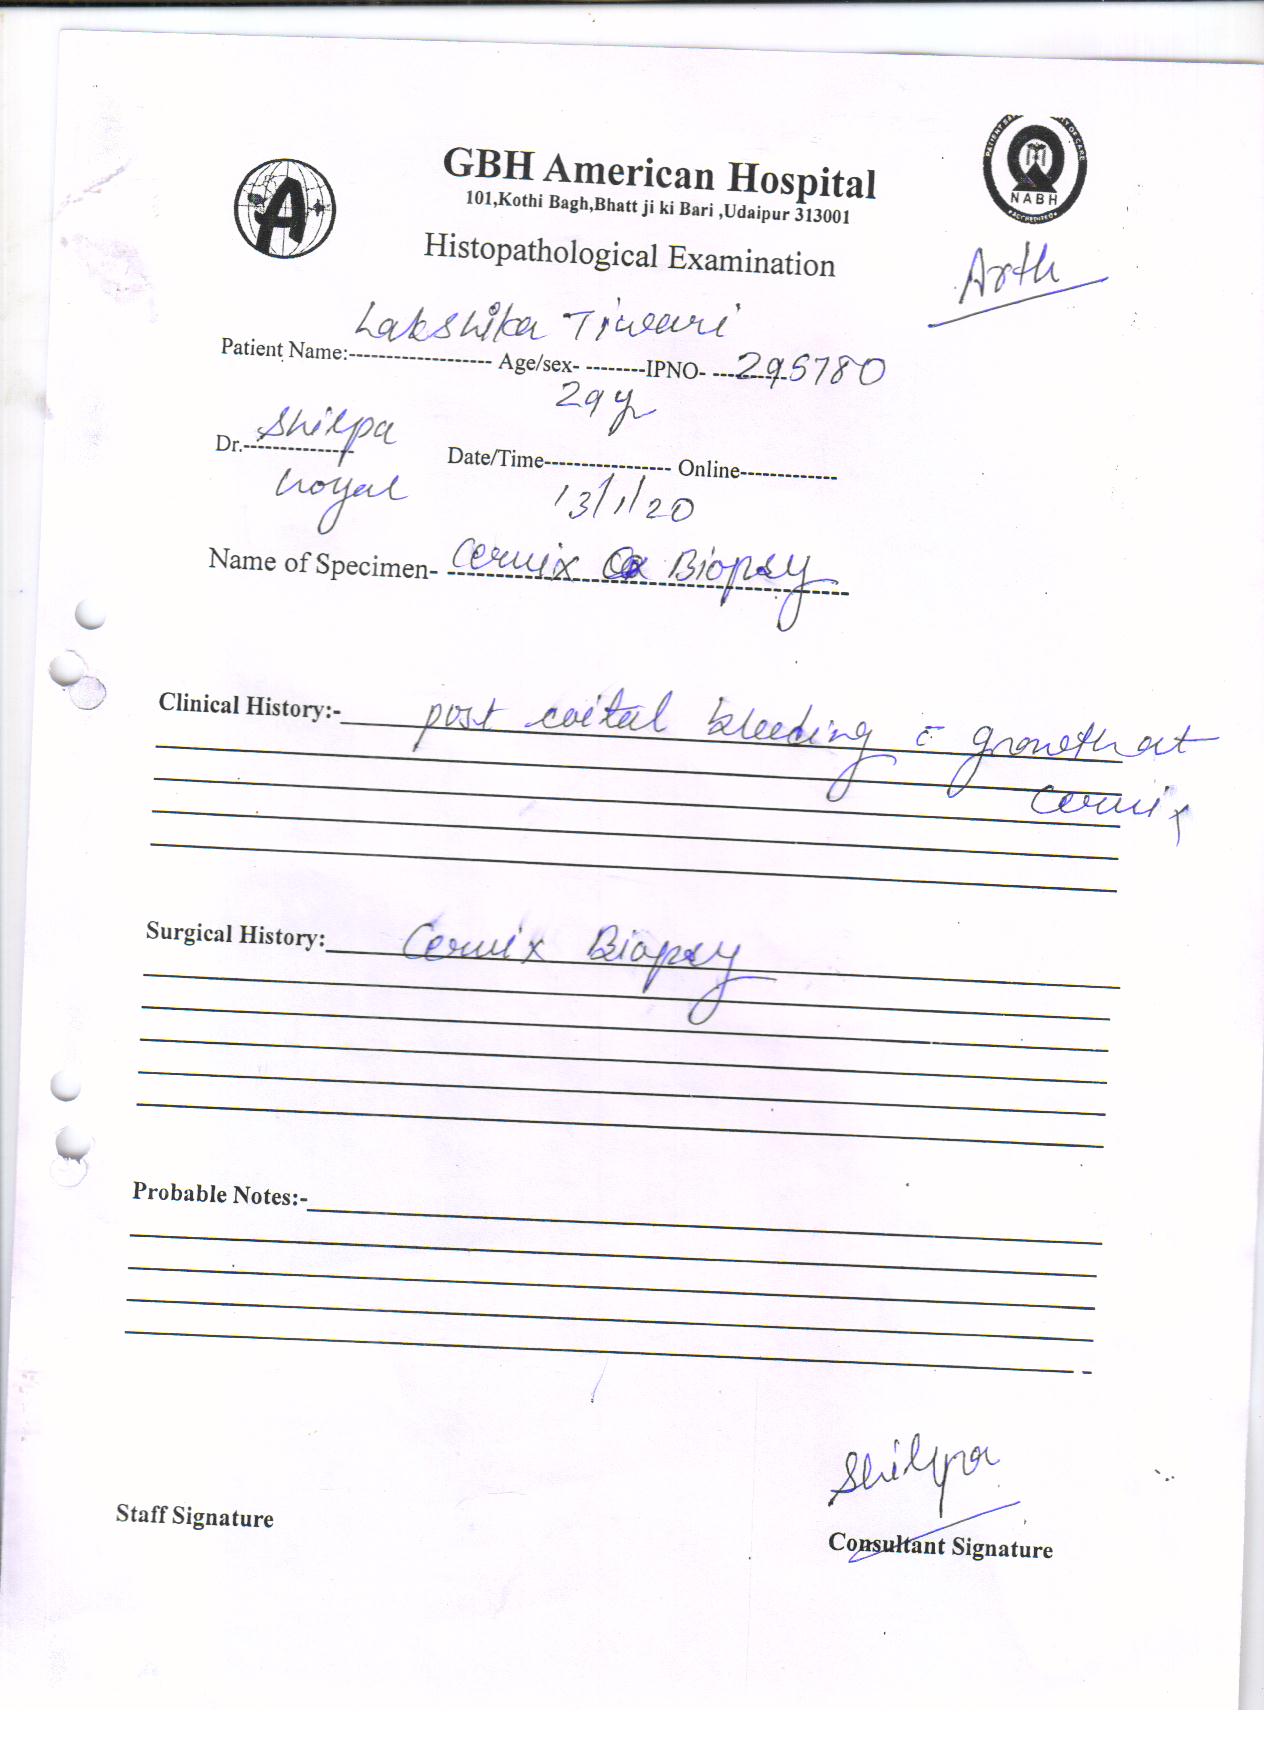 GBH American Hospital
101,Kothi Bagh,Bhatt ji ki Bari ,Udaipur 313001
NABH
ACCREDITED
Histopathological Examination
Arth
Lakshika Tiwari
Patient Name:------------------- Age/sex- --------IPNO- ---------- 295780
29 y
Dr.--------------- Shilpa
Goyal
Date/Time----------------- Online-------------
13/1/20
Name of Specimen- Cervix Biopsy
Clinical History:- post coital bleeding c̄ growth at
cervix
Surgical History: Cervix Biopsy
Probable Notes:-
Shilpa
Staff Signature
Consultant Signature